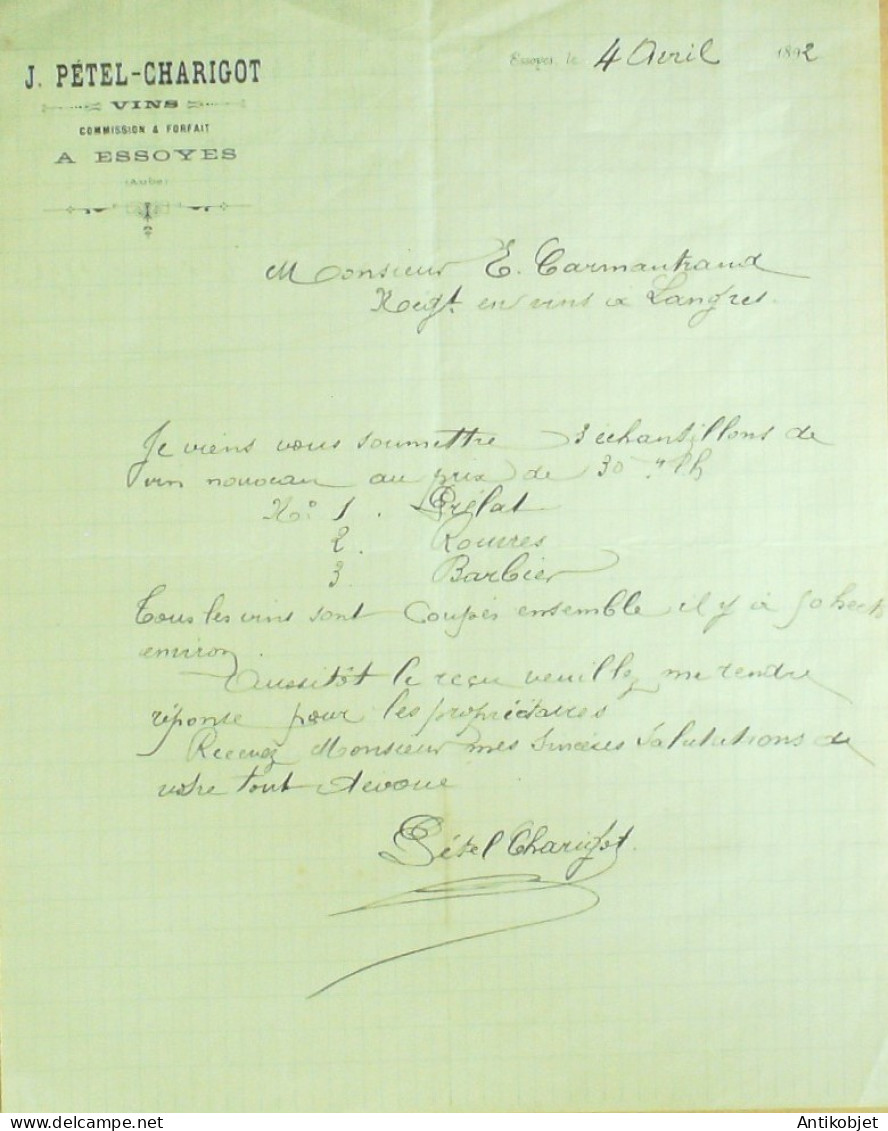 J. PÉTEL-CHARIGOT
VINS
COMMISSION & FORFAIT
A ESSOYES
(Aube)
Essoyes, le 4 Avril 1892
Monsieur E. Carmantrand
Negt. en vins à Langres.
Je viens vous soumettre 3 échantillons de
vin nouveau au prix de 30 " l'h
No. 1 . Prélat
2. Rouvres
3. Barbier
Tous les vins sont Coupés ensemble il y à 50 hect
environ.
Aussitôt le reçu veuillez me rendre
réponse pour les propriétaires
Recevez Monsieur mes Sincères Salutations de
votre tout dévoué
Pétel Charigot.
Antikobjet